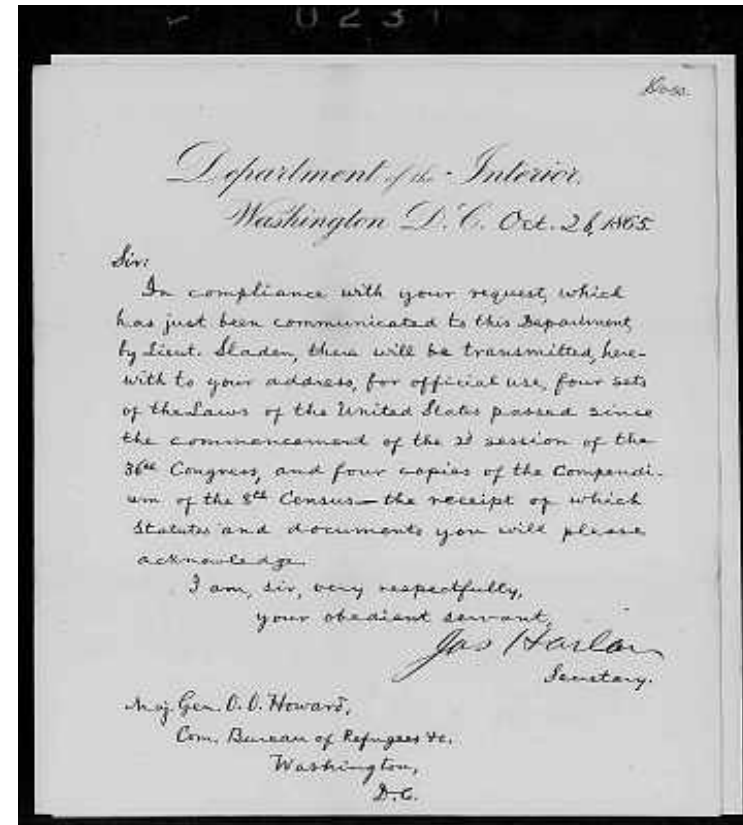 023
Docs.
Department of the Interior,
Washington D.C. Oct. 26, 1865
Sir:
In compliance with your request, which
has just been communicated to this Department,
by Lieut. Sladen, there will be transmitted, here-
with to your address, for official use, four sets
of the Laws of the United States passed since
the commencement of the 2d session of the
36th Congress, and four copies of the Compendi-
um of the 8th Census — the receipt of which
Statutes and documents you will please
acknowledge.
I am, sir, very respectfully,
your obedient servant,
Jas Harlan
Secretary.
Maj. Gen. O. O. Howard,
Com. Bureau of Refugees &c.
Washington,
D.C.